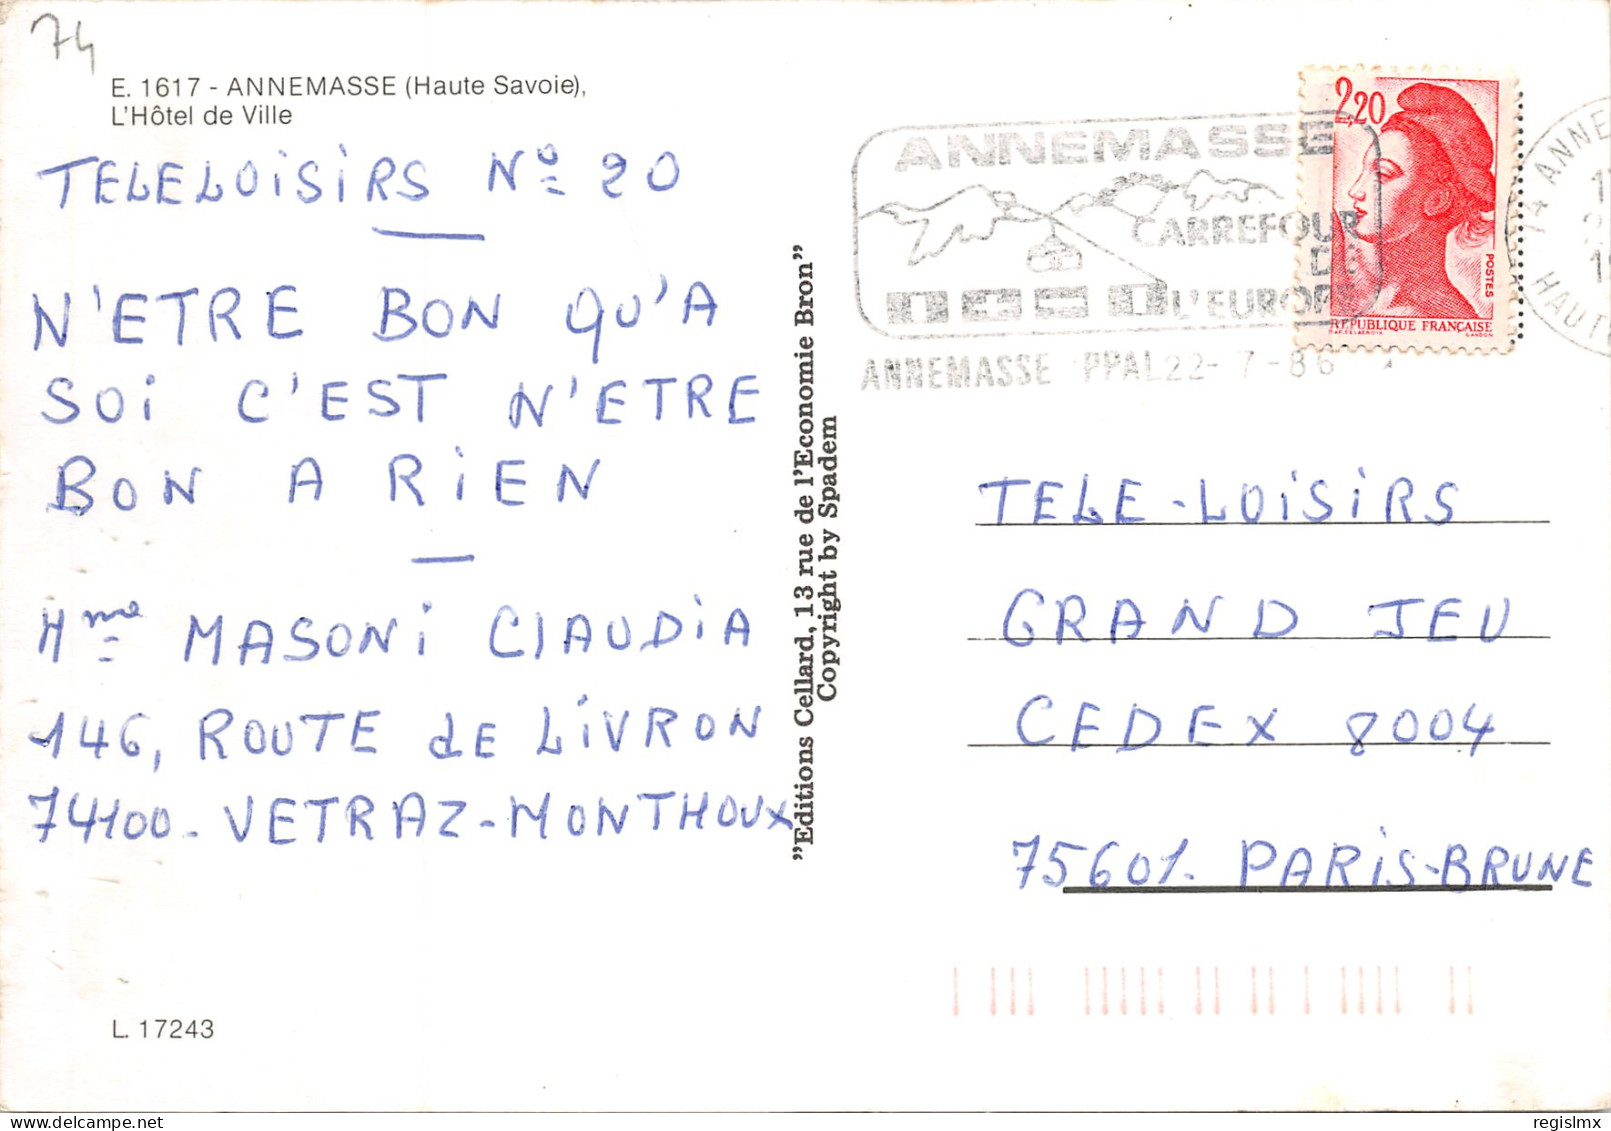 74
E. 1617 - ANNEMASSE (Haute Savoie),
L'Hôtel de Ville
TELELOISIRS Nº 20
N'ETRE BON QU'A
SOI C'EST N'ETRE
BON A RIEN
Mme MASONI ClAUDIA
146, ROUTE de LIVRON
74100 - VETRAZ-MONTHOUX
L. 17243
"Editions Cellard, 13 rue de l'Economie Bron"
Copyright by Spadem
ANNEMASSE
CARREFOUR
DE
L'EUROPE
ANNEMASSE PPAL 22-7-86
2,20
POSTES
REPUBLIQUE FRANÇAISE
74 ANNE
HAUT
TELE-LOISIRS
GRAND JEU
CEDEX 8004
75601. PARIS-BRUNE
delcampe.net
regislmx